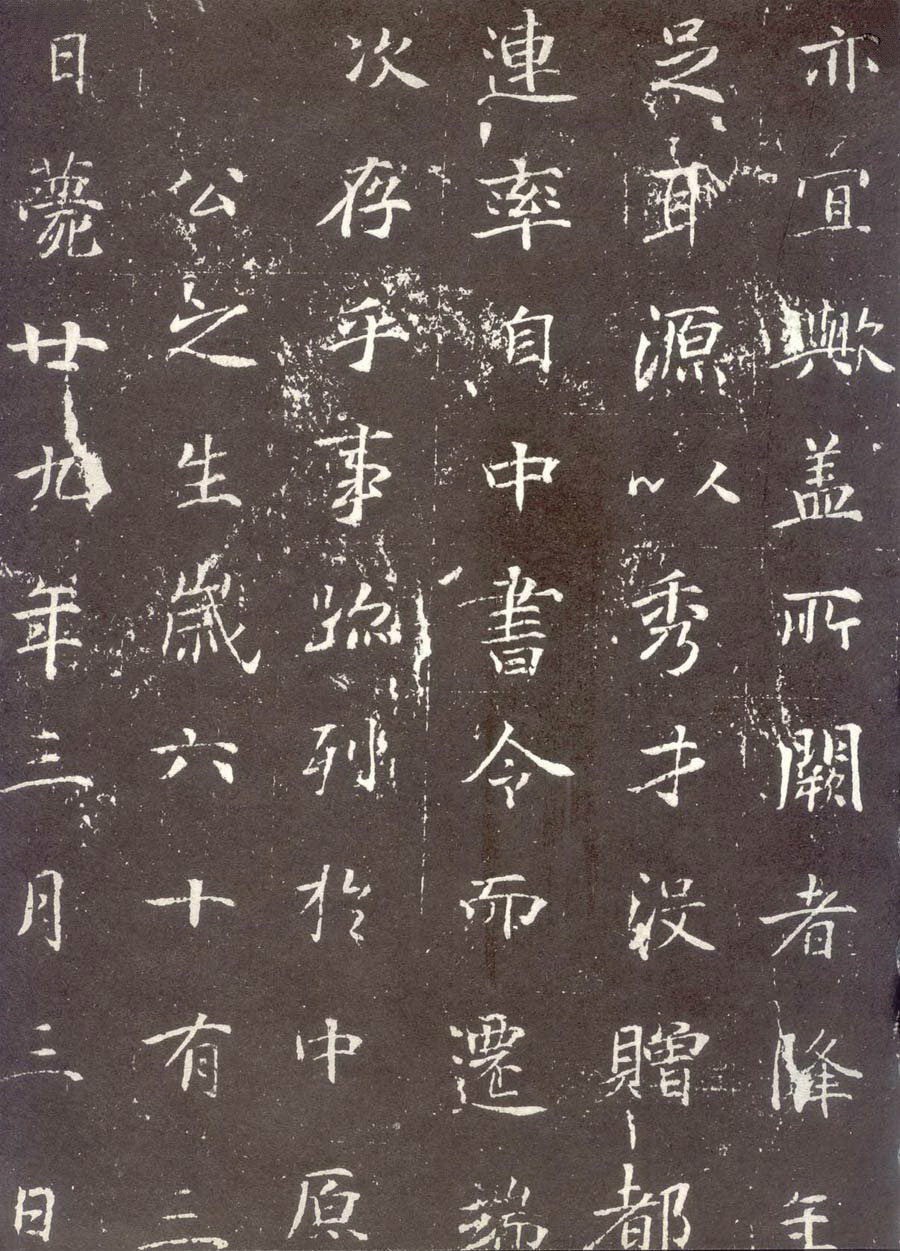 亦宜歟盖所闕者降年
足耳源以秀才没贈都
連率自中書令而遷端
次存乎事跡列於中原
公之生歲六十有三
日薨廿九年三月三日